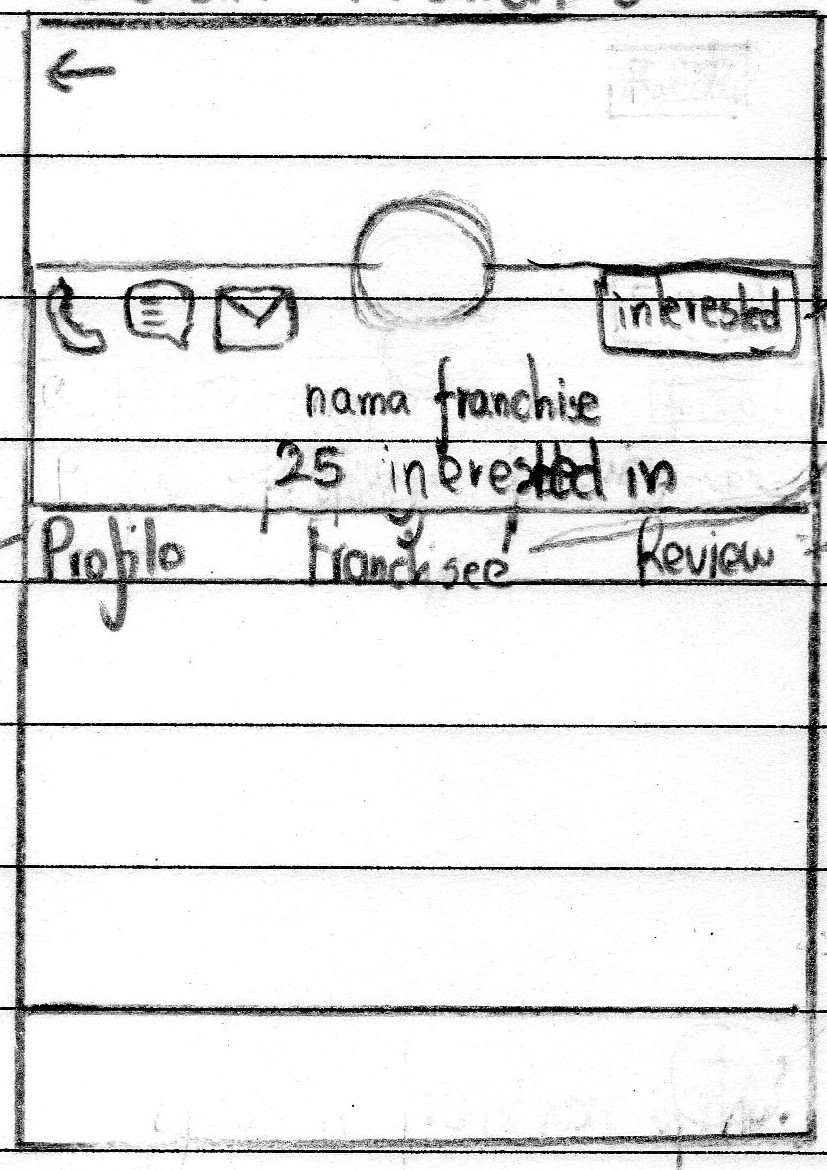 interested
nama franchise
25 interested in
Profile Franchisee Review